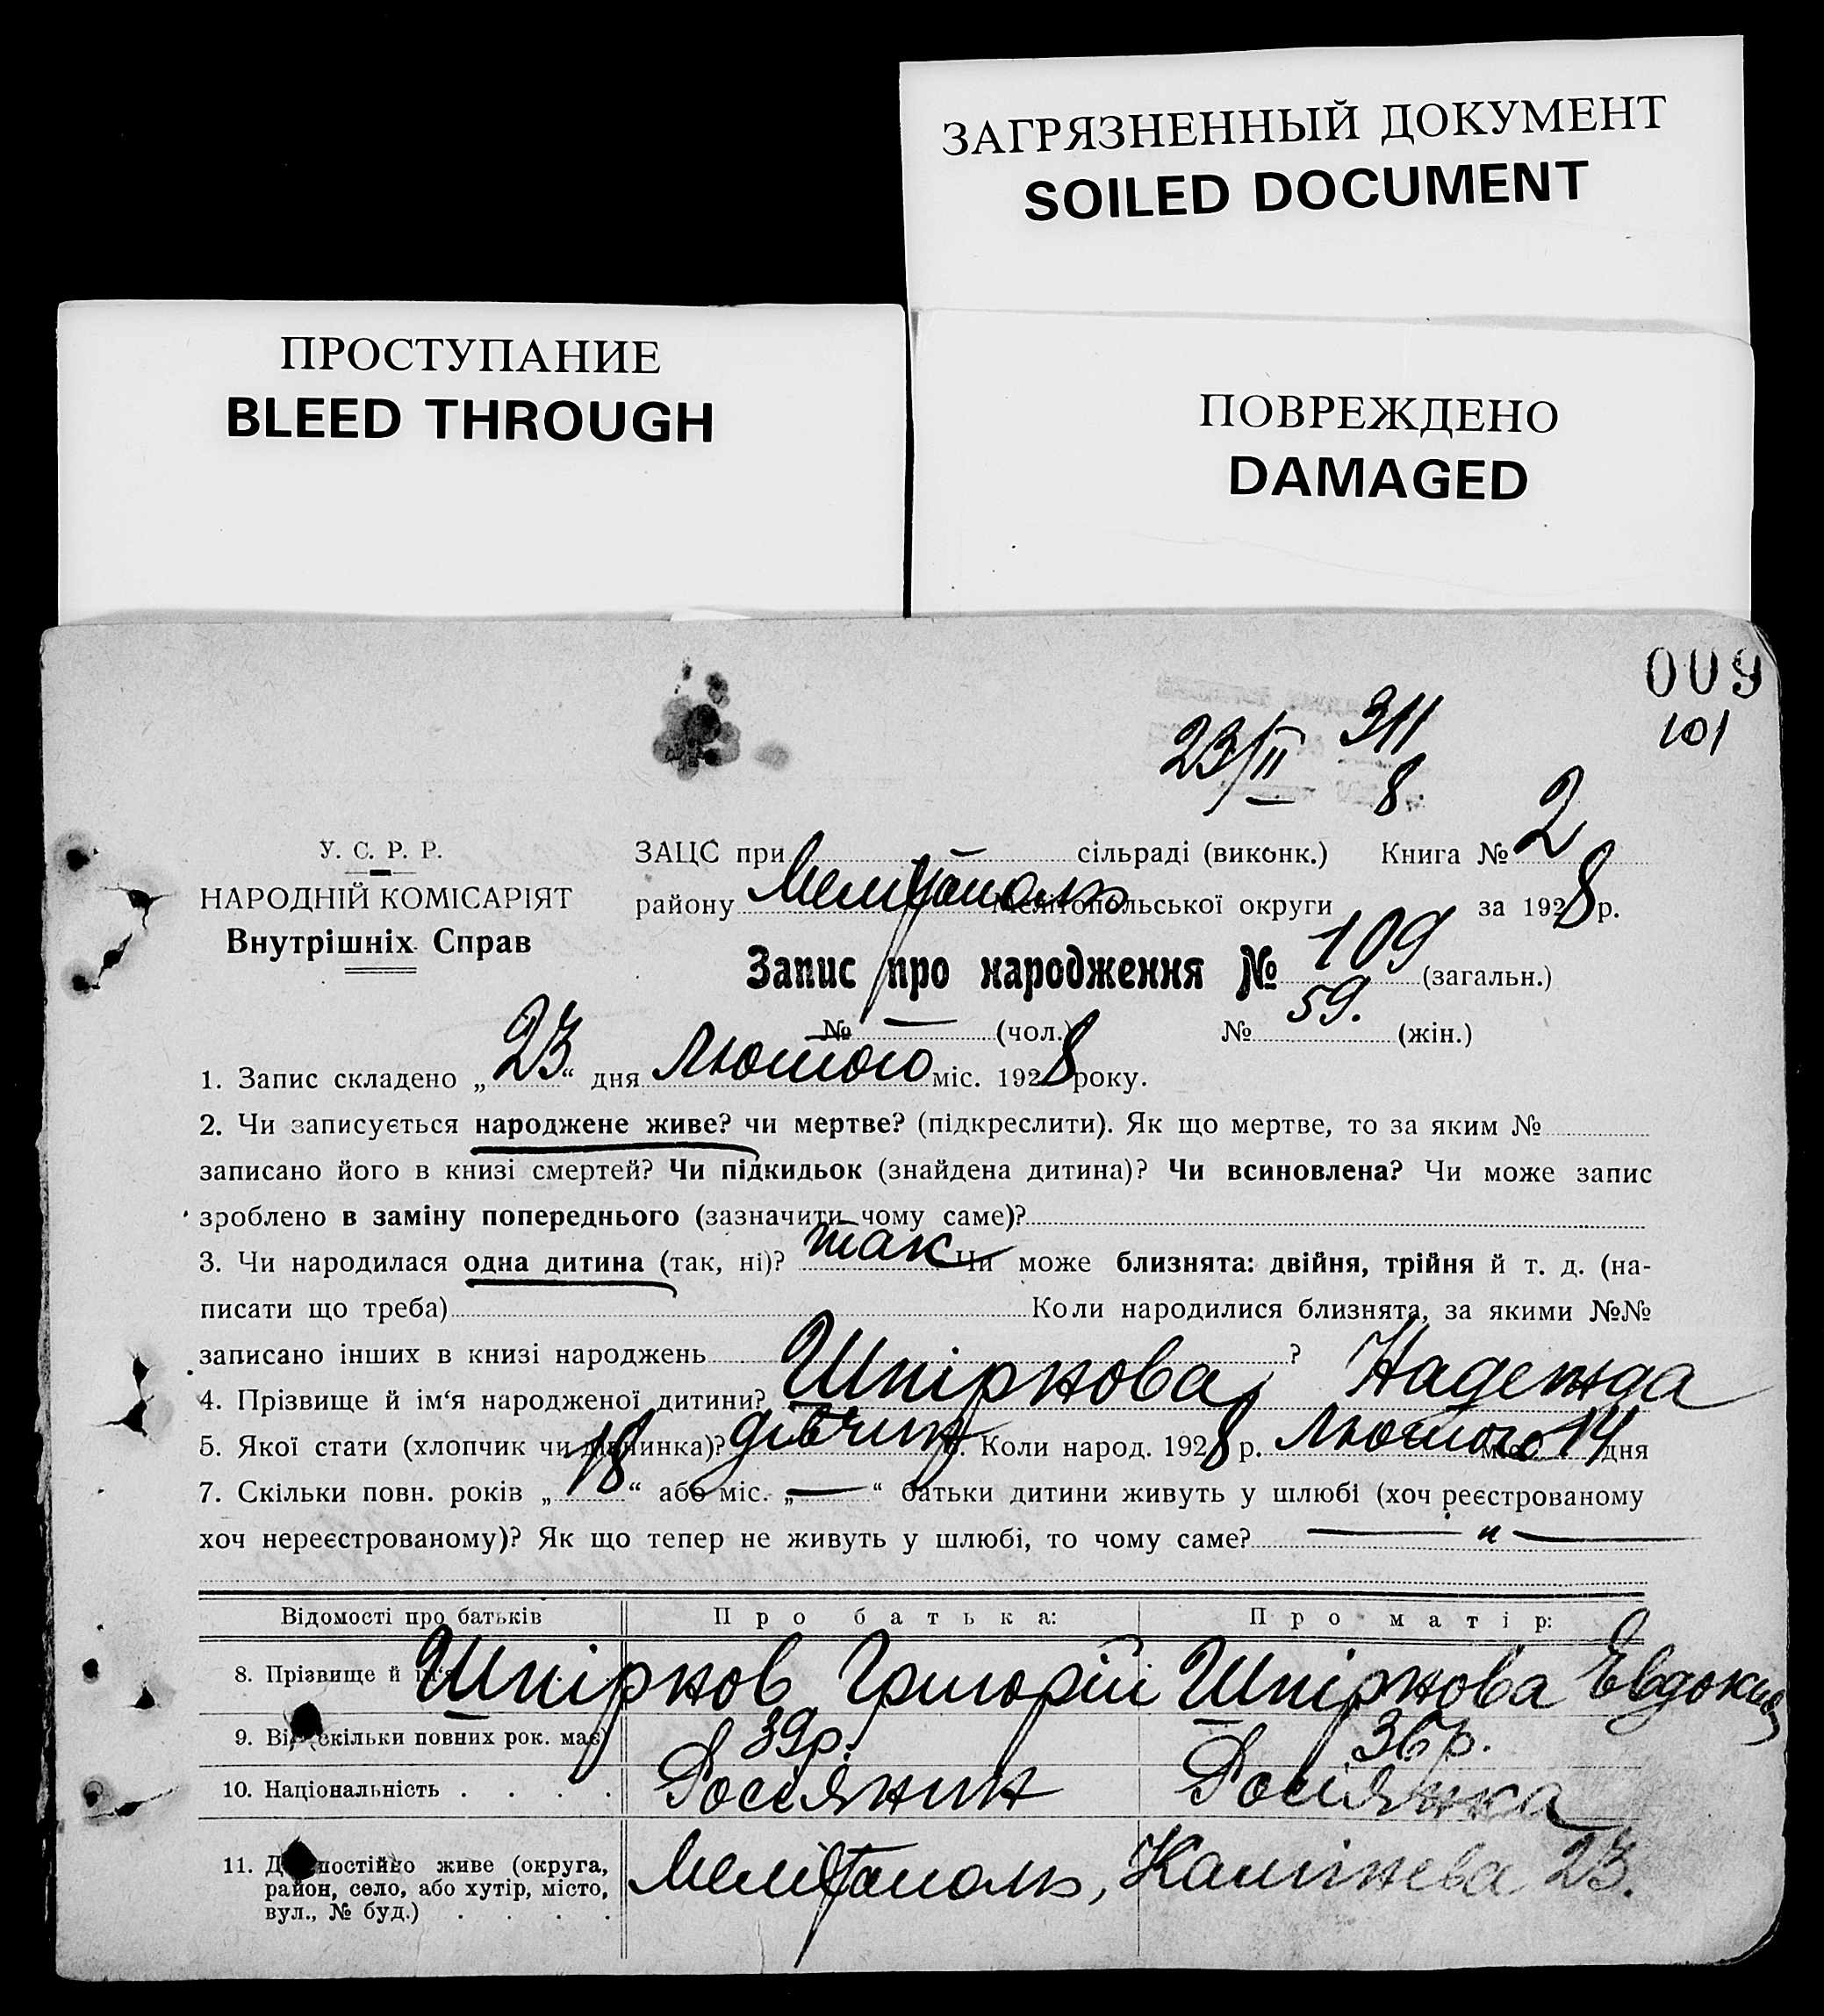 ЗАГРЯЗНЕННЫЙ ДОКУМЕНТ
SOILED DOCUMENT
ПРОСТУПАНИЕ
BLEED THROUGH
ПОВРЕЖДЕНО
DAMAGED
009
101
23/II 311
8.
У. С. Р. Р.
НАРОДНІЙ КОМІСАРІЯТ
Внутрішніх Справ
ЗАЦС при — сільраді (виконк.) Книга № 2
району Мелітополь Мелітопольської округи за 1928 р.
Запис про народження № 109 (загальн.)
№ — (чол.) № 59. (жін.)
1. Запис складено „23“ дня Лютого міс. 1928 року.
2. Чи записується народжене живе? чи мертве? (підкреслити). Як що мертве, то за яким №
записано його в книзі смертей? Чи підкидьок (знайдена дитина)? Чи всиновлена? Чи може запис
зроблено в заміну попереднього (зазначити чому саме)?
3. Чи народилася одна дитина (так, ні)? так Чи може близнята: двійня, трійня й т. д. (на-
писати що треба) Коли народилися близнята, за якими №№
записано інших в книзі народжень ?
4. Прізвище й ім‘я народженої дитини? Шпірнова, Надежда
5. Якої стати (хлопчик чи дівчинка)? дівчин 6. Коли народ. 1928 р. Лютого міс. 14 дня
7. Скільки повн. років „18“ або міс. „—“ батьки дитини живуть у шлюбі (хоч реєстрованому
хоч нереєстрованому)? Як що тепер не живуть у шлюбі, то чому саме? — „ —
Відомості про батьків Про батька: Про матір:
8. Прізвище й ім‘я Шпірнов Григорій Шпірнова Евдокия
9. Вік (скільки повних рок. має) 39р. 36р.
10. Національність . . . . Росіянин Росіянка
11. Де постійно живе (округа,
район, село, або хутір, місто,
вул., № буд.) . . . .
Мелітополь, Калінева 23.